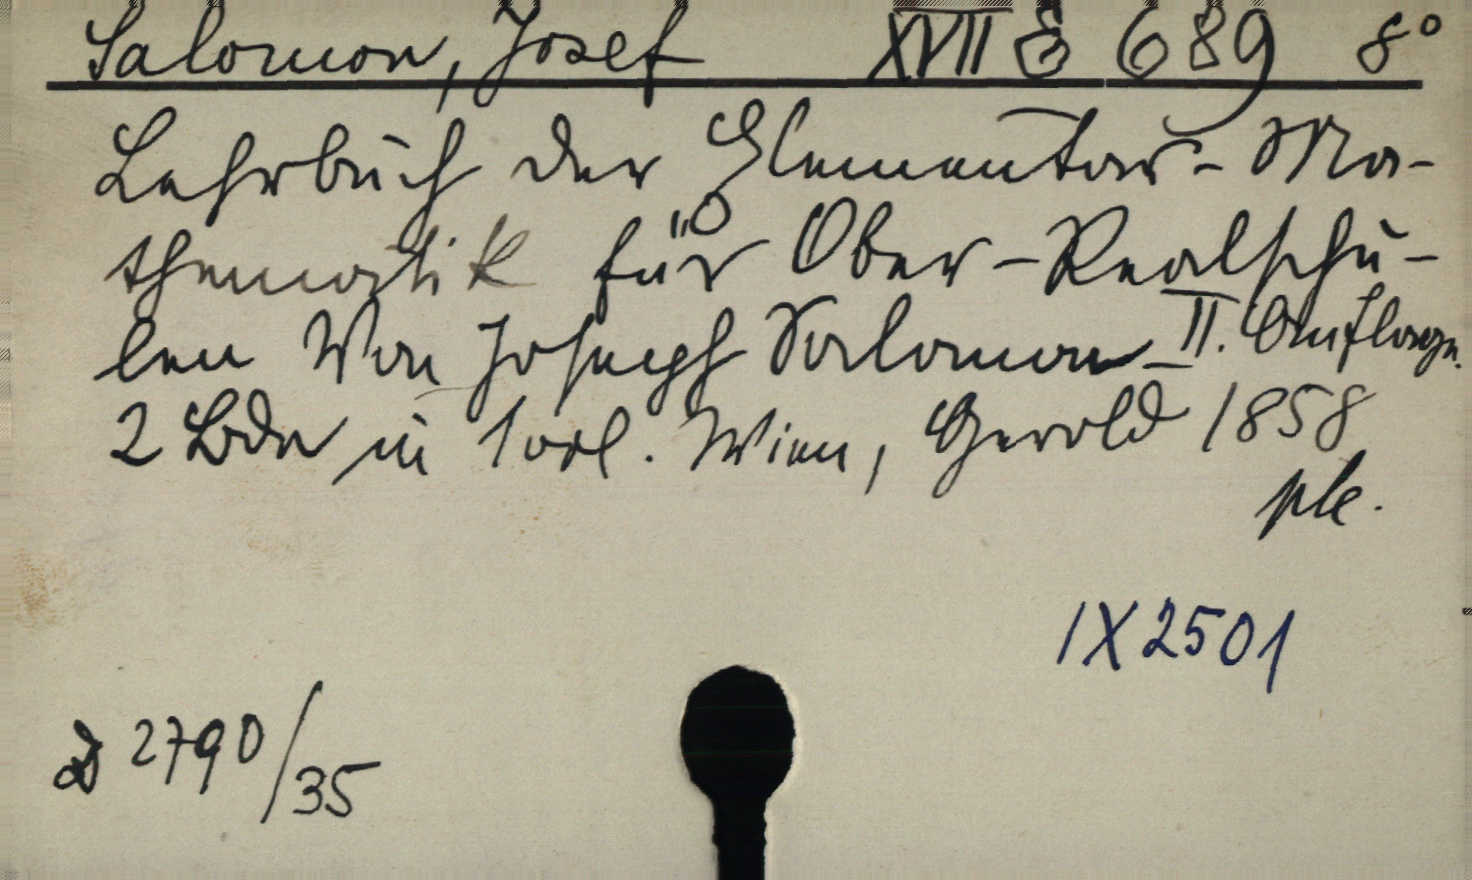 Salomon, Josef XVII E 689 8°
Lehrbuch der Elementar-Ma-
thematik für Ober-Realschu-
len Von Joseph Salomon II. Auflage.
2 Bde in 1 vol. Wien, Gerold 1858
ple.
IX 2501
D 2790/35